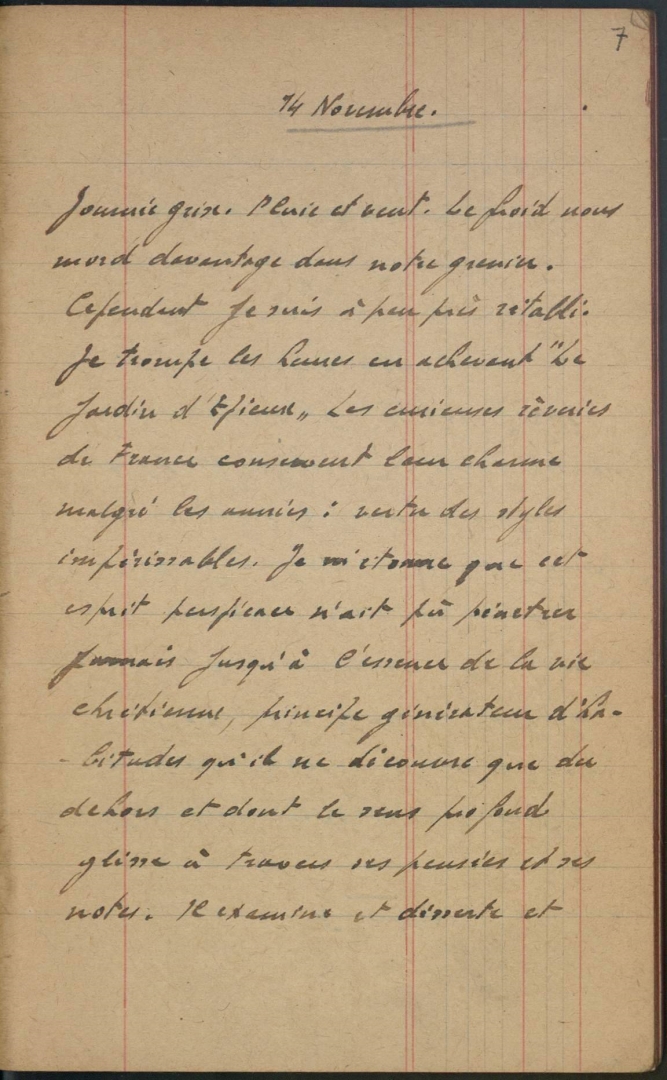 7
14 Novembre.
Journée grise. Pluie et vent. Le froid nous
mord davantage dans notre grenier.
Cependant je suis à peu près rétabli.
Je trompe les heures en achevant "Le
Jardin d'Epicure" Les curieuses rêveries
de France conservent leur charme
malgré les années : vertu des styles
impérissables. Je m'étonne que cet
esprit perspicace n'ait pû pénétrer
jamais jusqu'à l'essence de la vie
chrétienne, principe générateur d'ha-
-bitudes qu'il ne découvre que du
dehors et dont le sens profond
glisse à travers ses pensées et ses
notes. Il examine et disserte et